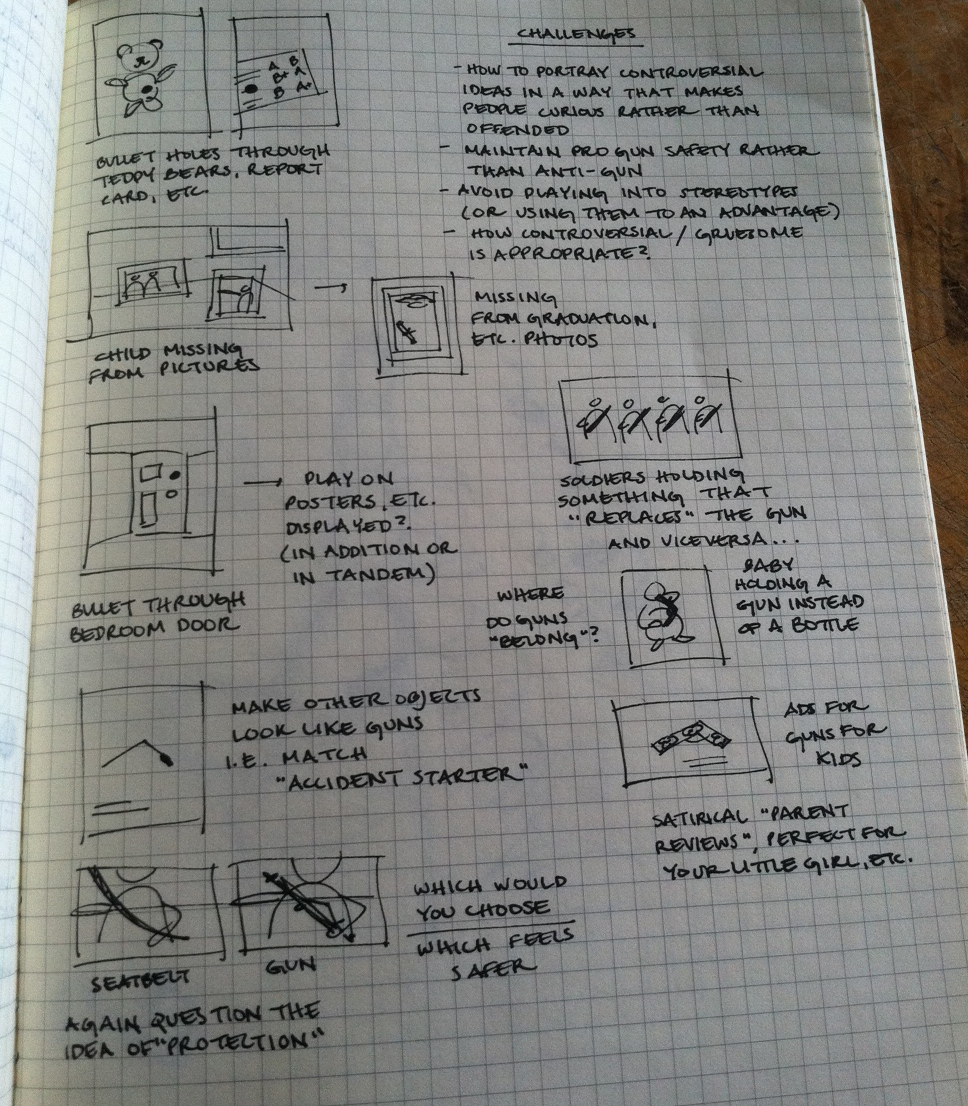 BULLET HOLES THROUGH
TEDDY BEARS, REPORT
CARD, ETC.
CHALLENGES
- HOW TO PORTRAY CONTROVERSIAL
IDEAS IN A WAY THAT MAKES
PEOPLE CURIOUS RATHER THAN
OFFENDED
- MAINTAIN PRO GUN SAFETY RATHER
THAN ANTI-GUN
- AVOID PLAYING INTO STEREOTYPES
(OR USING THEM TO AN ADVANTAGE)
- HOW CONTROVERSIAL / GRUESOME
IS APPROPRIATE?
CHILD MISSING
FROM PICTURES
MISSING
FROM GRADUATION,
ETC. PHOTOS
BULLET THROUGH
BEDROOM DOOR
PLAY ON
POSTERS, ETC.
DISPLAYED?
(IN ADDITION OR
IN TANDEM)
SOLDIERS HOLDING
SOMETHING THAT
"REPLACES" THE GUN
AND VICEVERSA...
WHERE
DO GUNS
"BELONG"?
BABY
HOLDING A
GUN INSTEAD
OF A BOTTLE
MAKE OTHER OBJECTS
LOOK LIKE GUNS
I.E. MATCH
"ACCIDENT STARTER"
ADS FOR
GUNS FOR
KIDS
SATIRICAL "PARENT
REVIEWS", PERFECT FOR
YOUR LITTLE GIRL, ETC.
SEATBELT
GUN
WHICH WOULD
YOU CHOOSE
WHICH FEELS
SAFER
AGAIN QUESTION THE
IDEA OF "PROTECTION"